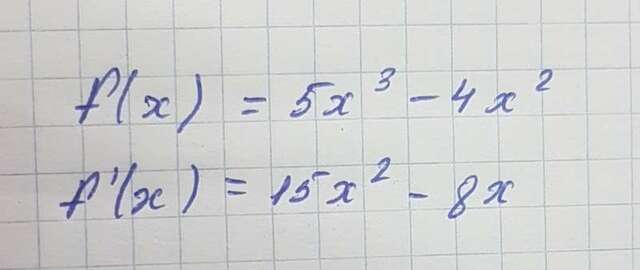 f(x) = 5x³ - 4x²
f'(x) = 15x² - 8x